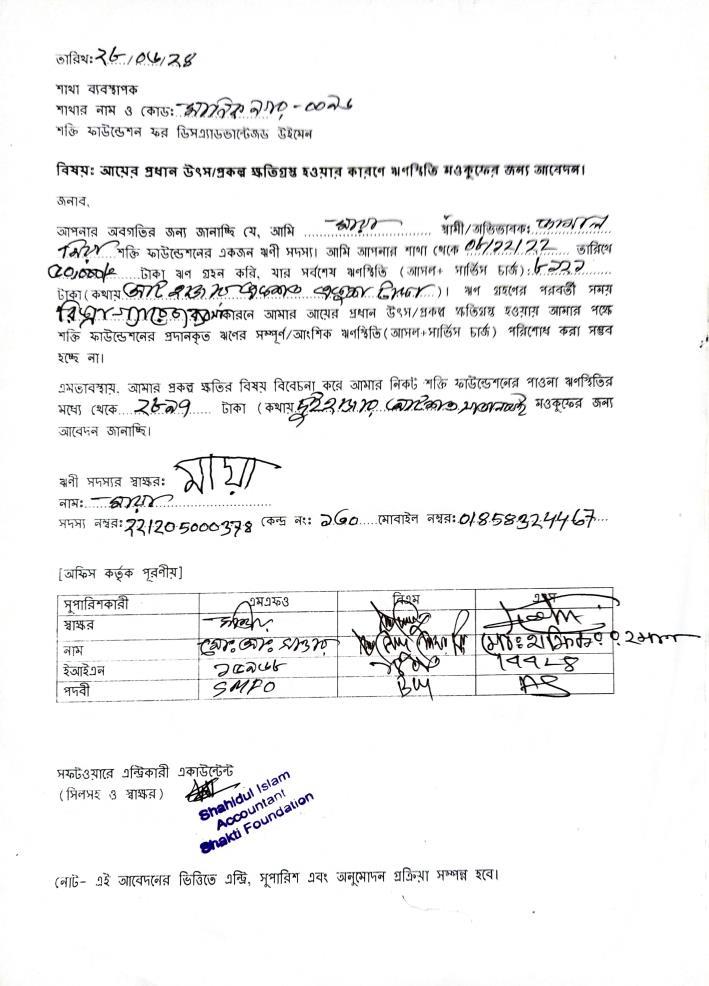 তারিখ: ২৮/০৬/২৪
শাখা ব্যবস্থাপক
শাখার নাম ও কোড: মানিক নগর - ০০৯৬
শক্তি ফাউন্ডেশন ফর ডিসএ্যাডভান্টেজড উইমেন
বিষয়: আয়ের প্রধান উৎস/প্রকল্প ক্ষতিগ্রস্ত হওয়ার কারণে ঋণস্থিতি মওকুফের জন্য আবেদন।
জনাব,
আপনার অবগতির জন্য জানাচ্ছি যে, আমি মায়া স্বামী/অভিভাবক:
মিয়া শক্তি ফাউন্ডেশনের একজন ঋণী সদস্য। আমি আপনার শাখা থেকে ০৮/১২/২২ তারিখে
৫০,০০০/= টাকা ঋণ গ্রহন করি, যার সর্বশেষ ঋণস্থিতি (আসল+ সার্ভিস চার্জ): ৮১১১
টাকা (কথায় )। ঋণ গ্রহণের পরবর্তী সময়
কারনে আমার আয়ের প্রধান উৎস/প্রকল্প ক্ষতিগ্রস্ত হওয়ায় আমার পক্ষে
শক্তি ফাউন্ডেশনের প্রদানকৃত ঋণের সম্পূর্ণ/আংশিক ঋণস্থিতি(আসল+সার্ভিস চার্জ) পরিশোধ করা সম্ভব
হচ্ছে না।
এমতাবস্থায়, আমার প্রকল্প ক্ষতির বিষয় বিবেচনা করে আমার নিকট শক্তি ফাউন্ডেশনের পাওনা ঋণস্থিতির
মধ্যে থেকে ২৮৯৭ টাকা (কথায় দুই হাজার আটশত সাতানব্বই মওকুফের জন্য
আবেদন জানাচ্ছি।
ঋণী সদস্যর স্বাক্ষর: মায়া
নাম: মায়া
সদস্য নম্বর: 221205000378 কেন্দ্র নং: ১৬০ মোবাইল নম্বর: 01858324467
[অফিস কর্তৃক পূরণীয়]
সুপারিশকারী এমএফও বিএম এএম
স্বাক্ষর
নাম মো: রহমান
ইআইএন ১৫৯৬৮
পদবী SMPO BM AS
সফটওয়ারে এন্ট্রিকারী একাউন্টেন্ট
(সিলসহ ও স্বাক্ষর)
Shahidul Islam
Accountant
Shakti Foundation
নোট- এই আবেদনের ভিত্তিতে এন্ট্রি, সুপারিশ এবং অনুমোদন প্রক্রিয়া সম্পন্ন হবে।